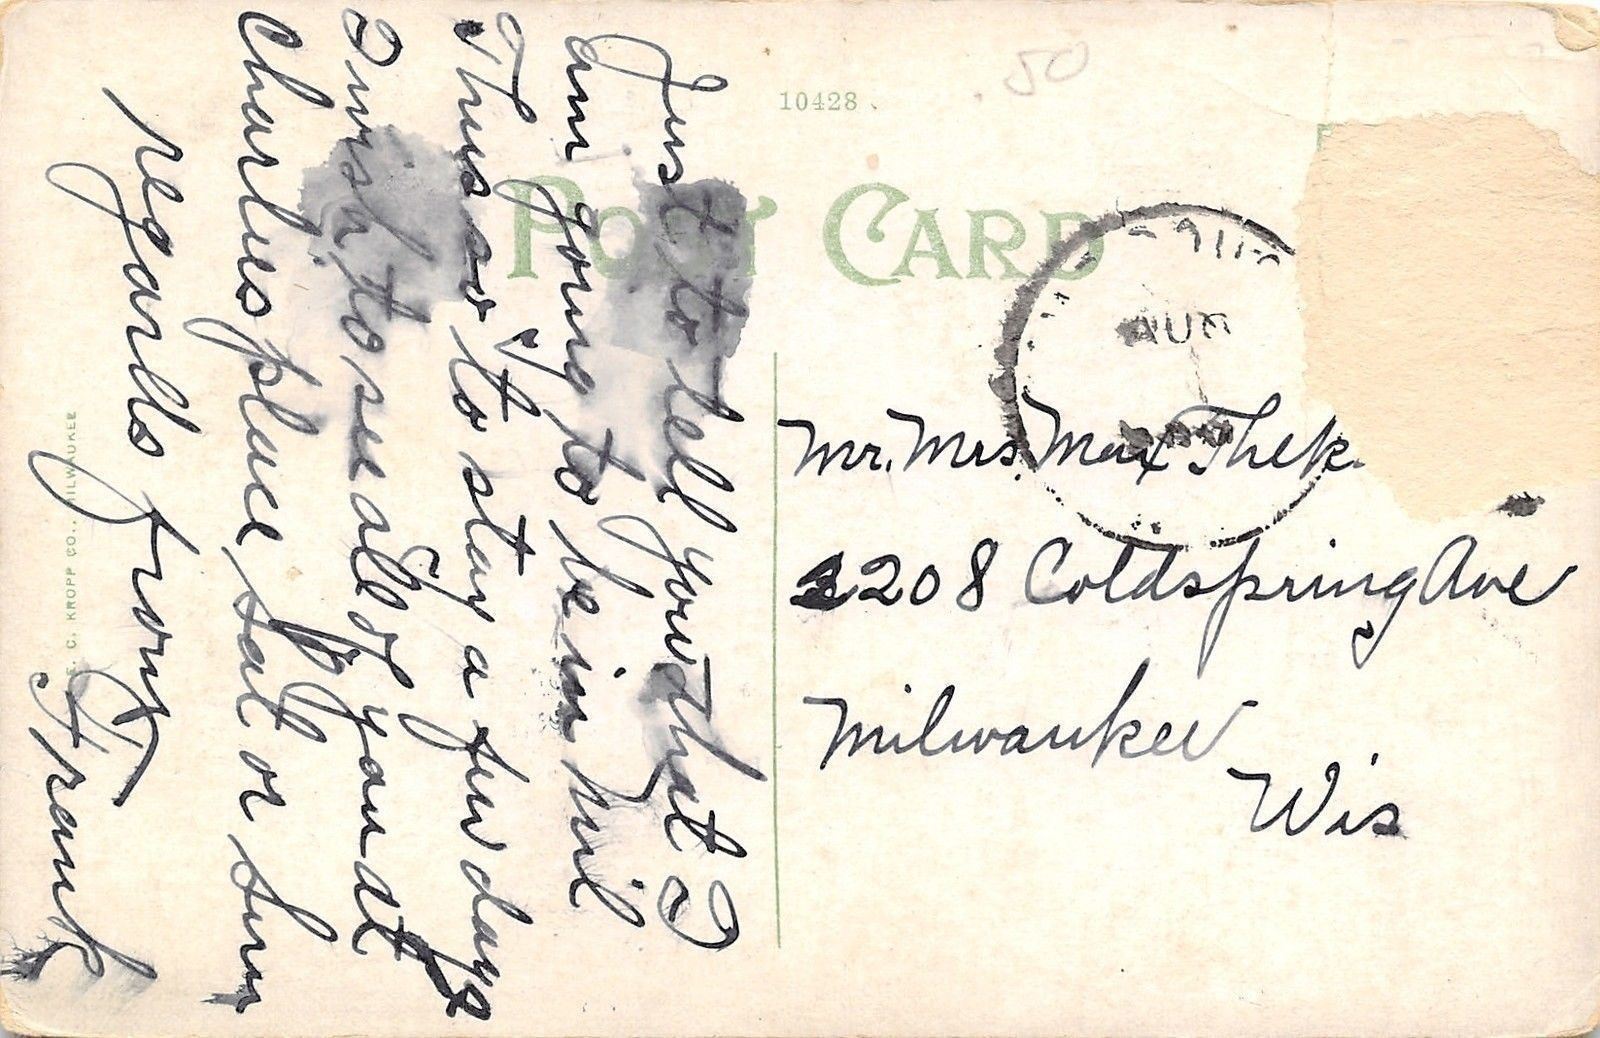 Just to tell you that I
am going to be in Mil
Thurs. to stay a few days
I wish to see all of you at
Charlies place Sat or Sun
regards from
Frank
E. C. KROPP CO., MILWAUKEE
10428
.50
POST CARD
AUG
Mr. Mrs. Max Thek.
2208 Coldspring Ave
Milwaukee
Wis